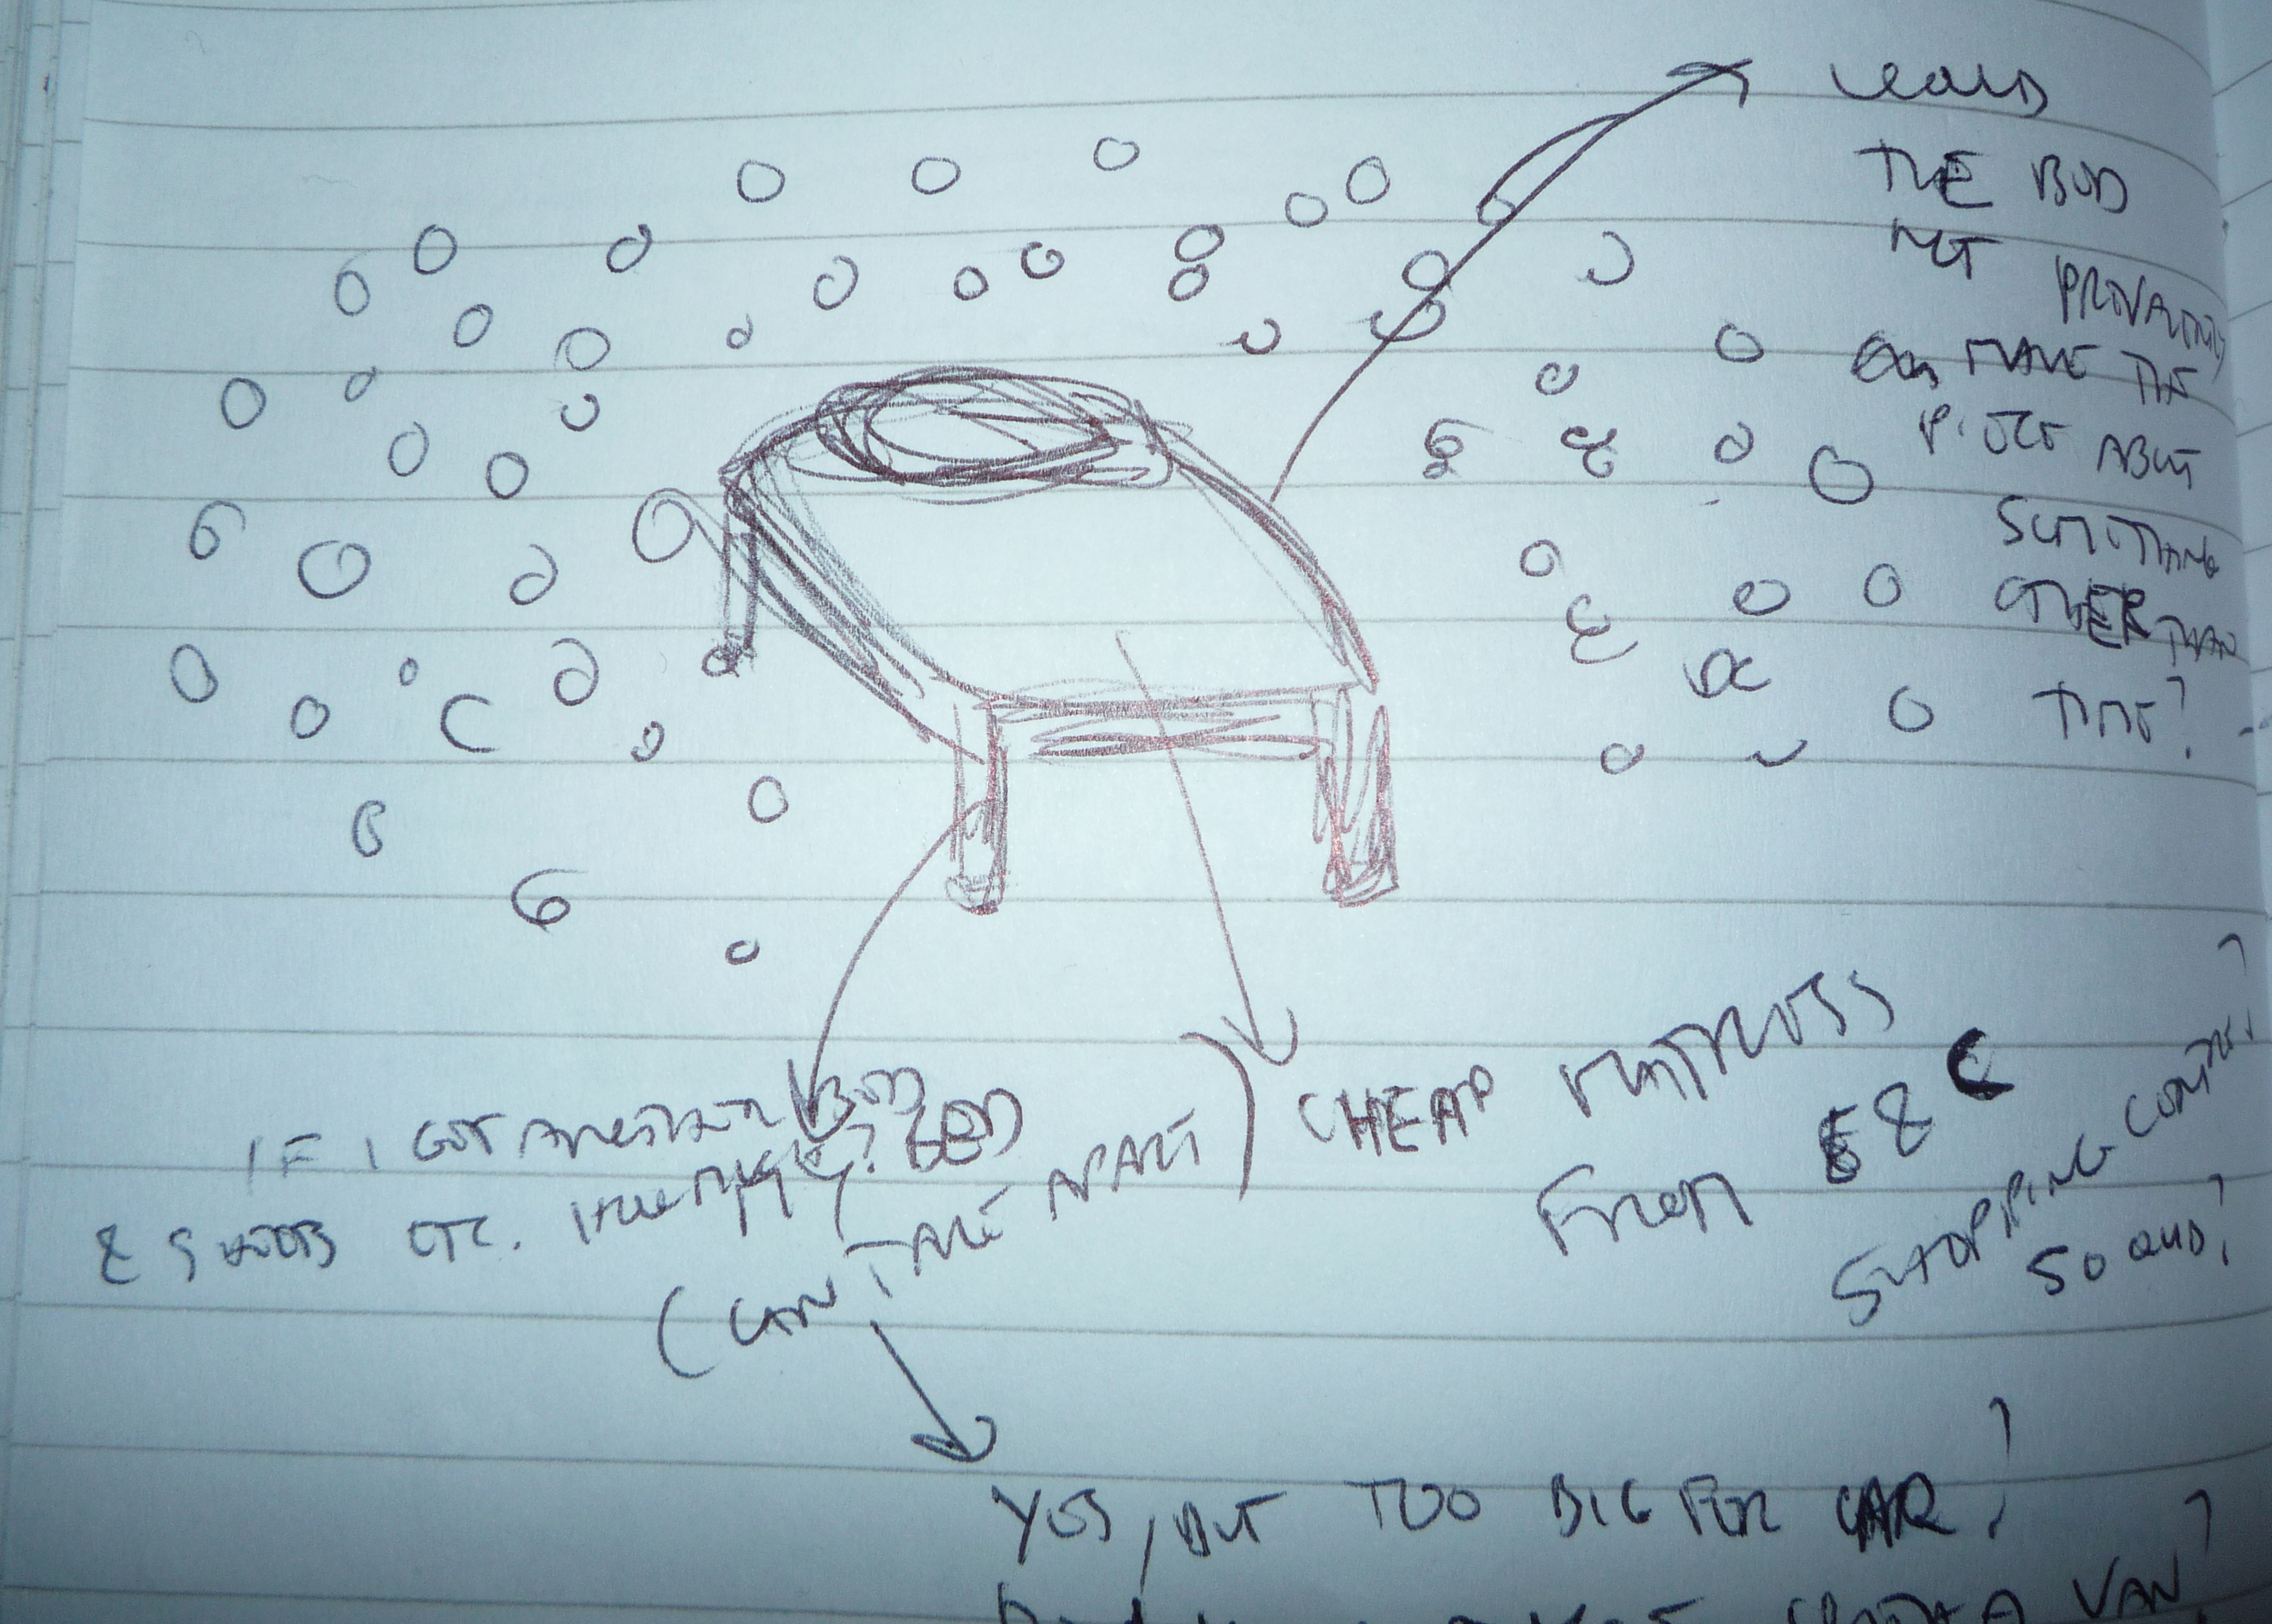 WOULD
THE BED
NOT
MAKE THE
PIECE ABOUT
SOMETHING
OTHER THAN
TIME?
CHEAP MATTRESS
FROM £80
SHOPPING CENTRE?
50 QUID?
IF I GOT ANOTHER BED
& SHEETS ETC.
BED
(CAN TAKE APART)
YES, BUT TOO BIG FOR CAR?
A VAN?